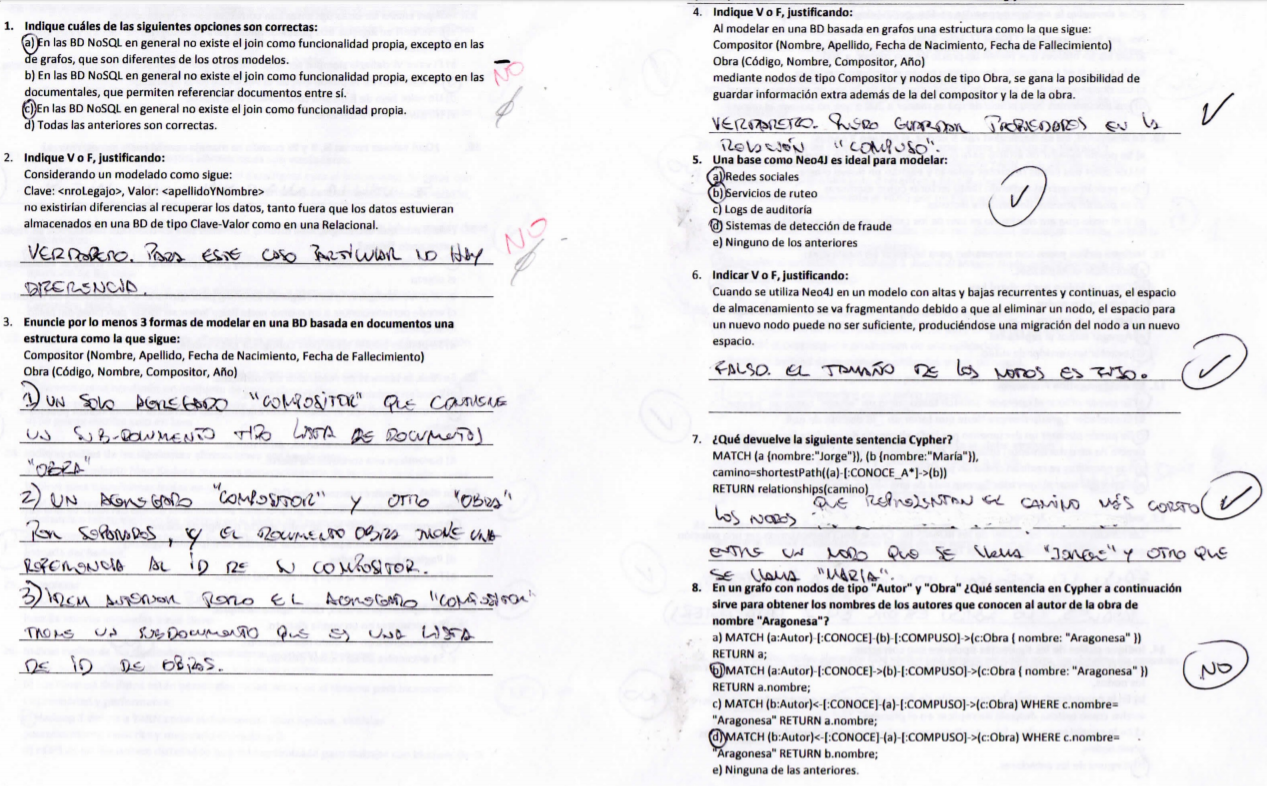 1. Indique cuáles de las siguientes opciones son correctas:
a) En las BD NoSQL en general no existe el join como funcionalidad propia, excepto en las
de grafos, que son diferentes de los otros modelos.
b) En las BD NoSQL en general no existe el join como funcionalidad propia, excepto en las
documentales, que permiten referenciar documentos entre sí.
c) En las BD NoSQL en general no existe el join como funcionalidad propia.
d) Todas las anteriores son correctas.
NO
2. Indique V o F, justificando:
Considerando un modelado como sigue:
Clave: <nroLegajo>, Valor: <apellidoYNombre>
no existirían diferencias al recuperar los datos, tanto fuera que los datos estuvieran
almacenados en una BD de tipo Clave-Valor como en una Relacional.
VERDADERO. PARA ESTE CASO PARTICULAR NO HAY
DIFERENCIA.
NO
3. Enuncie por lo menos 3 formas de modelar en una BD basada en documentos una
estructura como la que sigue:
Compositor (Nombre, Apellido, Fecha de Nacimiento, Fecha de Fallecimiento)
Obra (Código, Nombre, Compositor, Año)
1) UN SOLO AGREGADO "COMPOSITOR" QUE CONTIENE
UN SUB-DOCUMENTO TIPO LISTA DE DOCUMENTOS
"OBRA"
2) UN AGREGADO "COMPOSITOR" Y OTRO "OBRA"
POR SEPARADOS, Y EL DOCUMENTO OBRA TIENE UNA
REFERENCIA AL ID DE SU COMPOSITOR.
3) IDEM ANTERIOR PERO EL AGREGADO "COMPOSITOR"
TIENE UN SUBDOCUMENTO QUE ES UNA LISTA
DE ID DE OBRAS.
4. Indique V o F, justificando:
Al modelar en una BD basada en grafos una estructura como la que sigue:
Compositor (Nombre, Apellido, Fecha de Nacimiento, Fecha de Fallecimiento)
Obra (Código, Nombre, Compositor, Año)
mediante nodos de tipo Compositor y nodos de tipo Obra, se gana la posibilidad de
guardar información extra además de la del compositor y la de la obra.
VERDADERO. PUEDO GUARDAR PROPIEDADES EN LA
RELACIÓN "COMPUSO".
5. Una base como Neo4J es ideal para modelar:
a) Redes sociales
b) Servicios de ruteo
c) Logs de auditoría
d) Sistemas de detección de fraude
e) Ninguno de los anteriores
6. Indicar V o F, justificando:
Cuando se utiliza Neo4J en un modelo con altas y bajas recurrentes y continuas, el espacio
de almacenamiento se va fragmentando debido a que al eliminar un nodo, el espacio para
un nuevo nodo puede no ser suficiente, produciéndose una migración del nodo a un nuevo
espacio.
FALSO. EL TAMAÑO DE LOS NODOS ES FIJO.
7. ¿Qué devuelve la siguiente sentencia Cypher?
MATCH (a {nombre:"Jorge"}), (b {nombre:"María"}),
camino=shortestPath((a)-[:CONOCE_A*]->(b))
RETURN relationships(camino)
LOS NODOS QUE REPRESENTAN EL CAMINO MÁS CORTO
ENTRE UN NODO QUE SE LLAMA "JORGE" Y OTRO QUE
SE LLAMA "MARIA".
8. En un grafo con nodos de tipo "Autor" y "Obra" ¿Qué sentencia en Cypher a continuación
sirve para obtener los nombres de los autores que conocen al autor de la obra de
nombre "Aragonesa"?
a) MATCH (a:Autor)-[:CONOCE]-(b)-[:COMPUSO]->(c:Obra { nombre: "Aragonesa" })
RETURN a;
b) MATCH (a:Autor)-[:CONOCE]->(b)-[:COMPUSO]->(c:Obra { nombre: "Aragonesa" })
RETURN a.nombre;
c) MATCH (b:Autor)<-[:CONOCE]-(a)-[:COMPUSO]->(c:Obra) WHERE c.nombre=
"Aragonesa" RETURN a.nombre;
d) MATCH (b:Autor)<-[:CONOCE]-(a)-[:COMPUSO]->(c:Obra) WHERE c.nombre=
"Aragonesa" RETURN b.nombre;
e) Ninguna de las anteriores.
NO